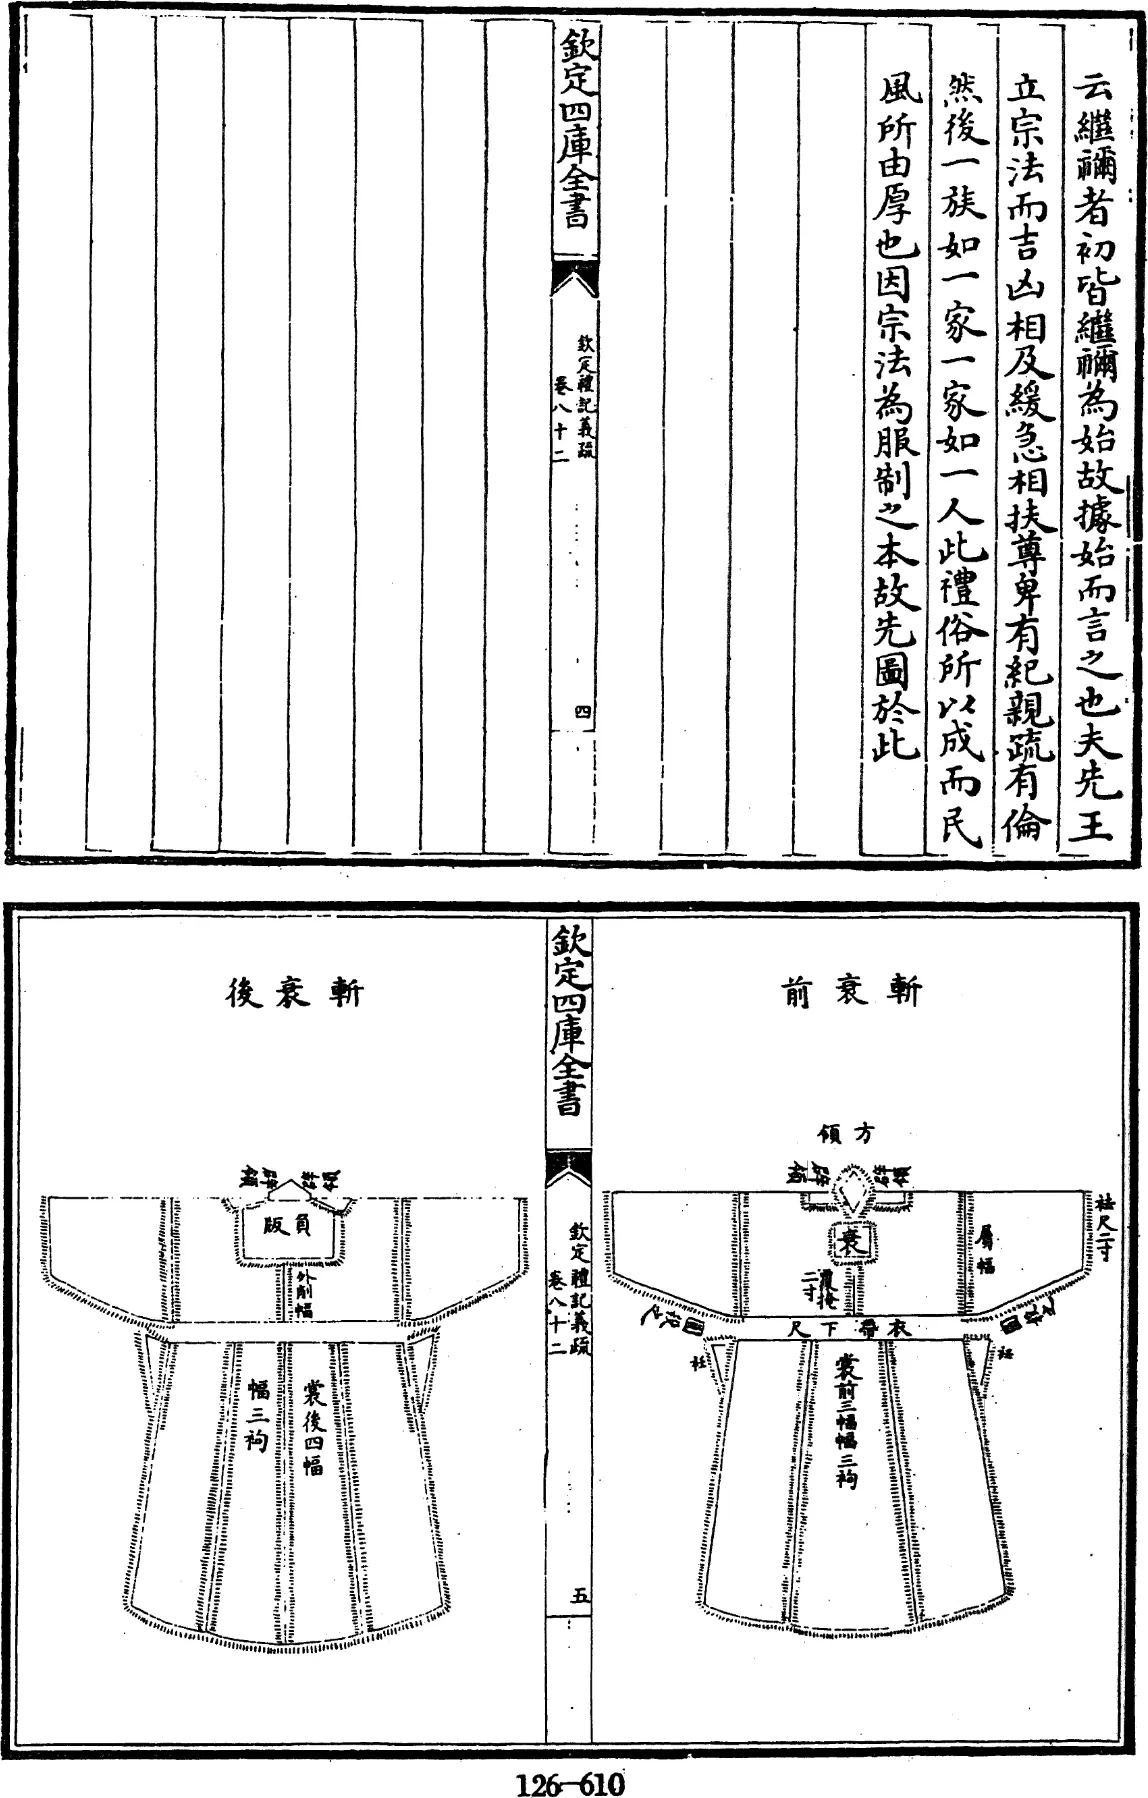 云繼禰者初皆繼禰為始故據始而言之也夫先王
立宗法而吉凶相及緩急相扶尊卑有紀親疏有倫
然後一族如一家一家如一人此禮俗所以成而民
風所由厚也因宗法為服制之本故先圖於此
欽定四庫全書
欽定禮記義疏
卷八十二
四
斬衰前
方領
衰
袪尺二寸
屬幅
覆掩
二寸
衣帶下尺
衽
衽
裳前三幅幅三袧
欽定四庫全書
欽定禮記義疏
卷八十二
五
斬衰後
負版
外削幅
裳後四幅
幅三袧
126-610